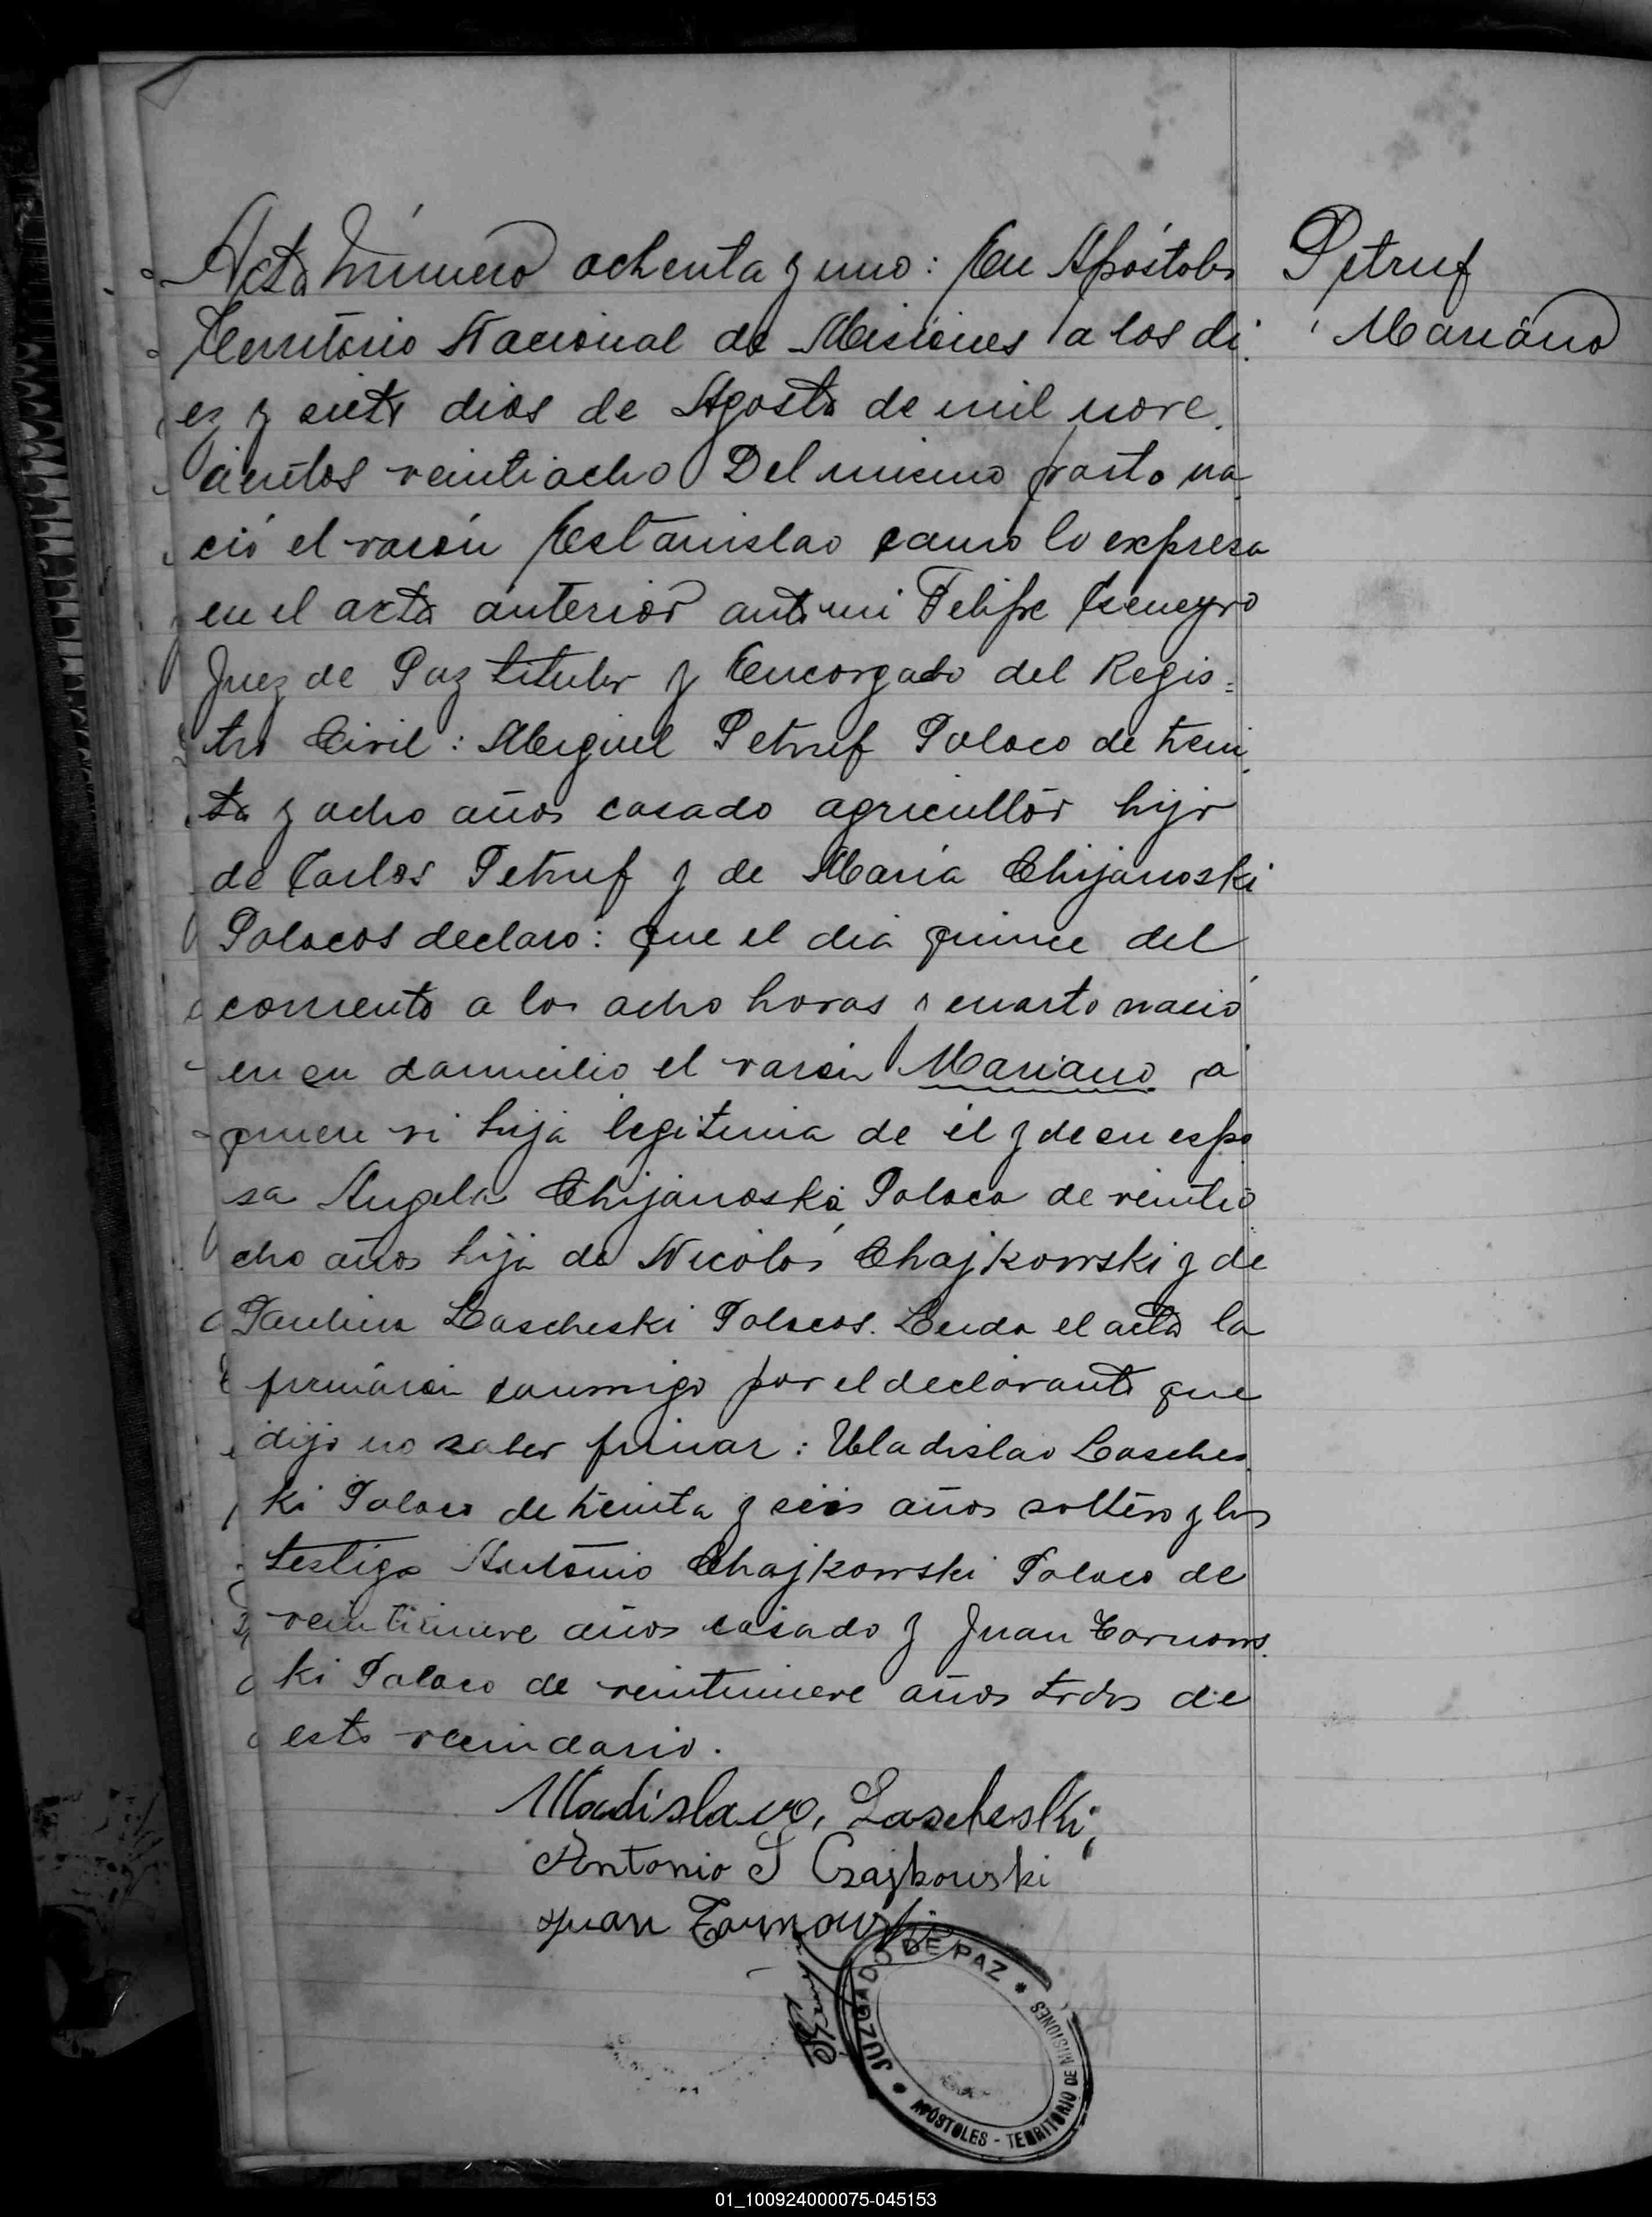 Petruf
Mariano
Acta Número ochenta y uno: En Apóstoles
Territorio Nacional de Misiones a los di
ez y siete dias de Agosto de mil nove
cientos veintiocho Del mismo parto na
ció el varón Estanislao como lo expresa
en el acta anterior ante mi Felipe
Juez de Paz titular y Encargado del Regis=
tro Civil: Miguel Petruf Polaco de trein
ta y ocho años casado agricultor hijo
de Carlos Petruf y de María Chijanoski
Polacos declaro: que el dia quince del
corriente a las ocho horas y cuarto nació
en su domicilio el varón Mariano a
quien vi hija legitima de él y de su espo
sa Angela Chijanoska Polaca de veintio
cho años hija de Nicolás Chajkowski y de
Paulina Lascheski Polacos. Leida el acta la
firmáron conmigo por el declarante que
dijo no saber firmar: Uladislao Lasches
ki Polaco de treinta y seis años soltero y los
testigo Antonio Chajkowski Polaco de
veintinueve años casado y Juan Tornows
ki Polaco de veintinueve años todos de
este vecindario.
Uladislavo, Lascheski,
Antonio S Czajkowski
Juan Tarnowski
JUZGADO DE PAZ * APÓSTOLES - TERRITORIO DE MISIONES *
01_100924000075-045153